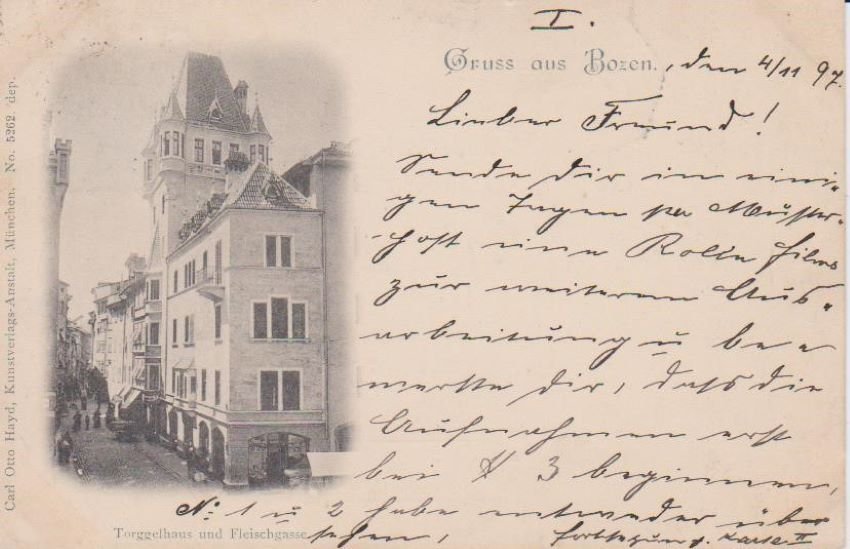 I.
Gruss aus Bozen., den 4/11 97.
Lieber Freund!
Sende dir in eini-
gen Tagen pr Muster-
post eine Rolle films
zur weiteren Aus-
arbeitung u be
merke dir, daß die
Aufnahmen erst
bei № 3 beginnen,
No: 1 u 2 habe entweder über
sehen,
Fortsetzung s. Karte II
Torggelhaus und Fleischgasse
Carl Otto Hayd, Kunstverlags-Anstalt, München. No. 5262. dep.